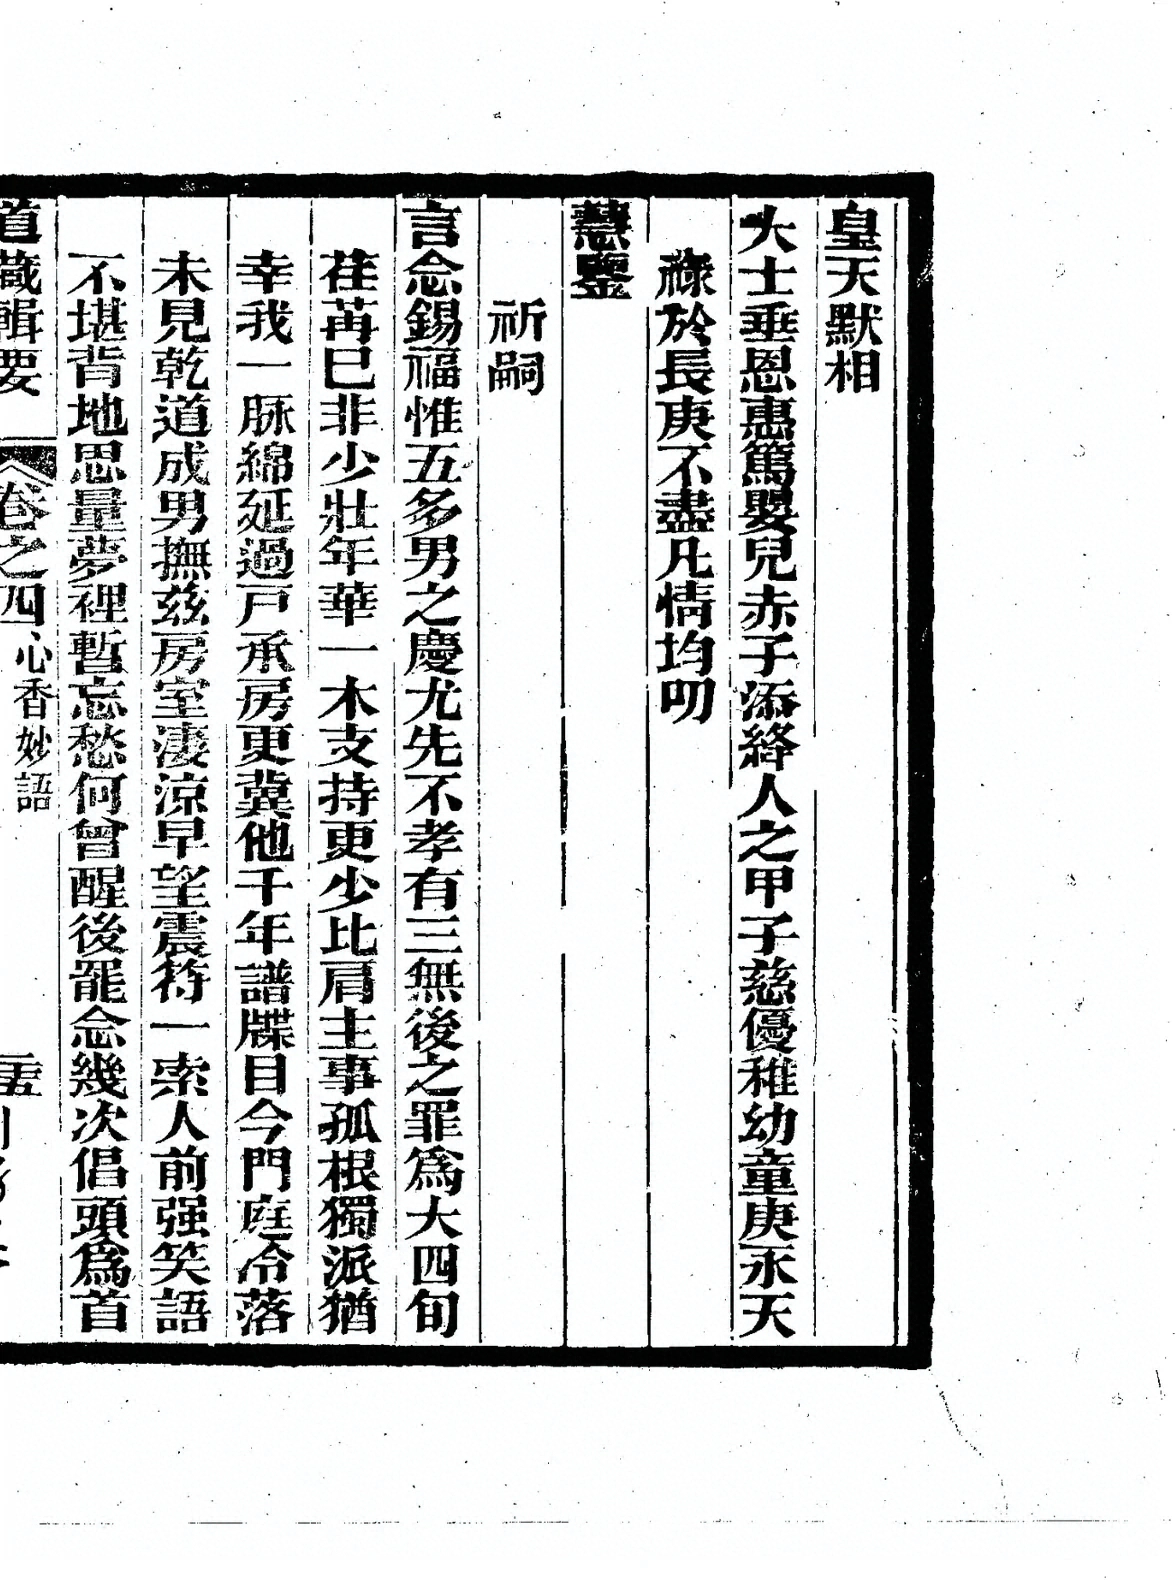 皇天默相
大士垂恩惠篤嬰兒赤子添絳人之甲子慈優稚幼童庚永天
祿於長庚不盡凡情均叨
慧鑒
祈嗣
言念錫福惟五多男之慶尤先不孝有三無後之罪爲大四旬
荏苒巳非少壯年華一木支持更少比肩主事孤根獨派猶
幸我一脉綿延過戸承房更冀他千年譜牒目今門庭冷落
未見乾道成男撫兹房室淒涼早望震符一索人前强笑語
不堪背地思量夢裡暫忘愁何曾醒後罷念幾次倡頭爲首
道藏輯要 卷之四 心香妙語